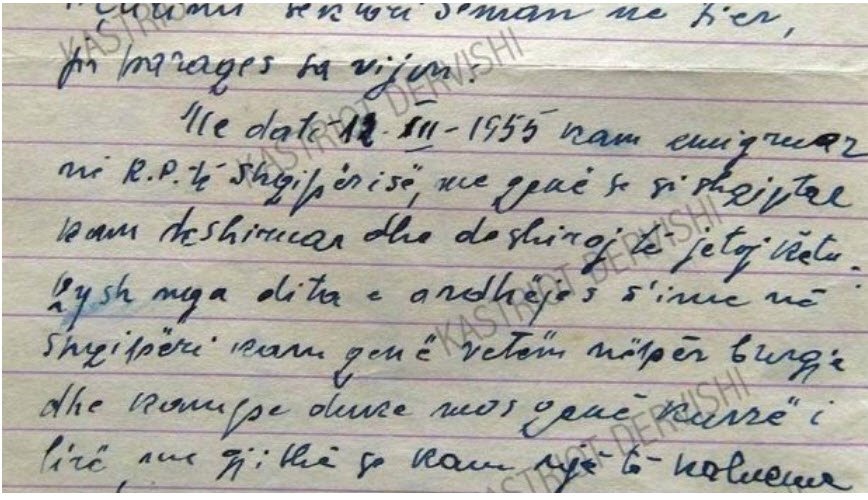 sektori Seman në Fier,
për marrages sa vijon:
Me datë 12-XII-1955 kam emigruar
në R.P. të Shqipërisë, me qenë se si shqiptar
kam dëshiruar dhe dëshiroj të jetoj këtu.
Qysh nga dita e ardhëjes s'ime në
Shqipëri kam qenë vetëm nëpër burgje
dhe kampe duke mos qenë kurrë i
lirë, me gjithë se kam një të kaluemë
KASTRIOT DERVISHI
KASTRIOT DERVISHI
KASTRIOT DERVISHI